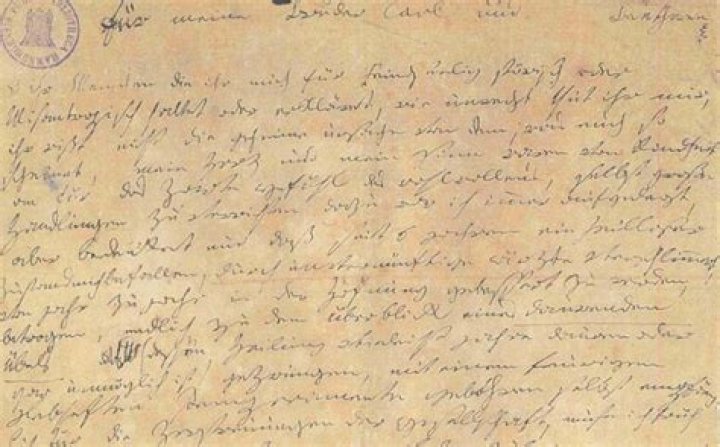 für meine Brüder Carl und
o ihr Menschen die ihr mich für Feindseelig störisch oder
Misantropisch haltet oder erkläret, wie unrecht thut ihr mir,
ihr wißt nicht die geheime urßache von dem, was euch so
scheinet, mein Herz und mein Sinn waren von Kindheit
an für das Zarte Gefühl des wohlwollens, selbst große
Handlungen zu verrichten dazu war ich immer aufgelegt,
aber bedenket nur daß seit 6 jahren ein heilloser
Zustand mich befallen, durch unvernünftige ärzte verschlimmert,
von jahr zu jahr in der Hofnung gebessert zu werden,
betrogen, endlich zu dem überblick eines daurenden
Übels (dessen Heilung vieleicht jahre dauren oder
gar unmöglich ist) gezwungen, mit einem feurigen
Lebhaften Temperamente gebohren selbst empfäng
für die Zerstreuungen der Gesellschaft, muste ich früh